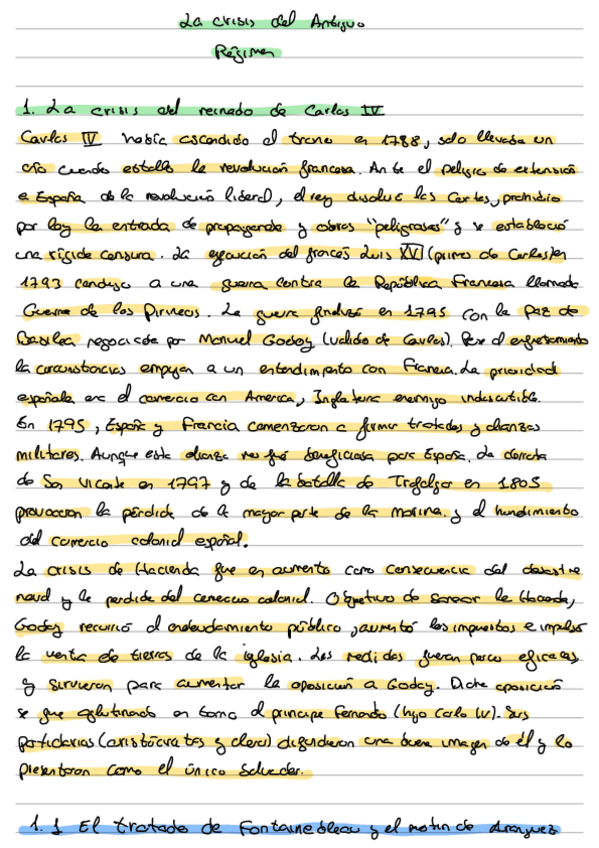 La crisis del Antiguo
Régimen
1. La crisis del reinado de Carlos IV
Carlos IV había ascendido al trono en 1788, solo llevaba un
año cuando estalló la revolución francesa. Ante el peligro de extensión
a España de la revolución liberal, el rey disolvió las Cortes, prohibió
por ley la entrada de propaganda y obras "peligrosas" y se estableció
una rígida censura. La ejecución del francés Luis XVI (primo de Carlos) en
1793 condujo a una guerra contra la República Francesa llamada
Guerra de los Pirineos. La guerra finalizó en 1795 con la Paz de
Basilea negociada por Manuel Godoy (valido de Carlos). Pese al enfrentamiento
las circunstancias empujan a un entendimiento con Francia. La prioridad
española era el comercio con America, Inglaterra enemigo indiscutible.
En 1795, España y Francia comenzaron a firmar tratados y alianzas
militares. Aunque esta alianza no fué beneficiosa para España. La derrota
de San Vicente en 1797 y de la batalla de Trafalgar en 1805
provocaron la pérdida de la mayor parte de la marina y el hundimiento
del comercio colonial español.
La crisis de Hacienda fue en aumento como consecuencia del desastre
naval y la perdida del comercio colonial. Objetivo de sanear la Hacienda,
Godoy recurrió al endeudamiento público, aumentó los impuestos e impulsó
la venta de tierras de la iglesia. Las medidas fueron poco eficaces
y sirvieron para aumentar la oposición a Godoy. Dicha oposición
se fue aglutinando en torno al príncipe Fernando (hijo Carlo IV). Sus
partidarios (aristócratas y clero) difundieron una buena imagen de él y lo
presentaron como el único Salvador.
1.1 El tratado de Fontainebleau y el motín de Aranjuez